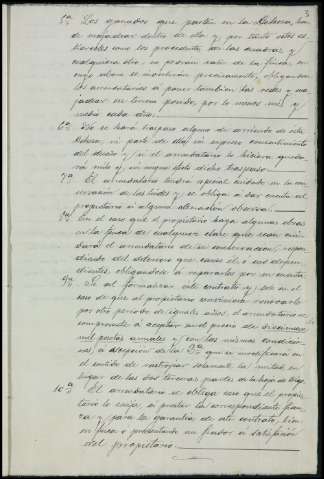 3
5ª Los ganados que pasten en la dehesa, han
de majadear dentro de ella y, por tanto estos es-
tiercoles como los procedentes de las cuadras y
cualquiera otro, no podrán salir de la finca, en
cuyo abono se invertirán precisamente, obligandose
los arrendatarios á poner tambien las redes y ma-
jadear en tercera persona, por lo menos mes y
medio cada año.
6ª No se hará traspaso alguno de arriendo de esta
dehesa, ni parte de ella, sin expreso consentimiento
del dueño y si el arrendatario lo hiciera, queda-
rá nulo y sin ningun efecto dicho traspaso.
7ª El arrendatario tendrá especial cuidado en la con-
servación de las lindes y se obliga a dar cuenta al
propietario si alguna alteración observa.
8ª En el caso que el propietario haga algunas obras
en la finca de cualquier clase que sean cui-
dará el arrendatario de su conservacion, respon-
diendo del deterioro que cause él o sus depen-
dientes, obligandose á repararlos por su cuenta.
9ª Si al formarse este contrato y, en el
caso de que al propietario conviniera renovarlo
por otro periodo de iguales años, el arrendatario se
compromete á aceptar en el precio de
mil pesetas anuales y con las mismas condicio-
nes, á excepcion de la 3ª que se modificaria en
el sentido de rastrojar solamente la mitad en
lugar de las dos terceras partes de la hoja de trigo.
10ª El arrendatario se obliga caso que el propie-
tario lo exija, á prestar la correspondiente fian-
za y para la garantia de este contrato, bien
en finca o presentando un fiador á satisfacción
del propietario.